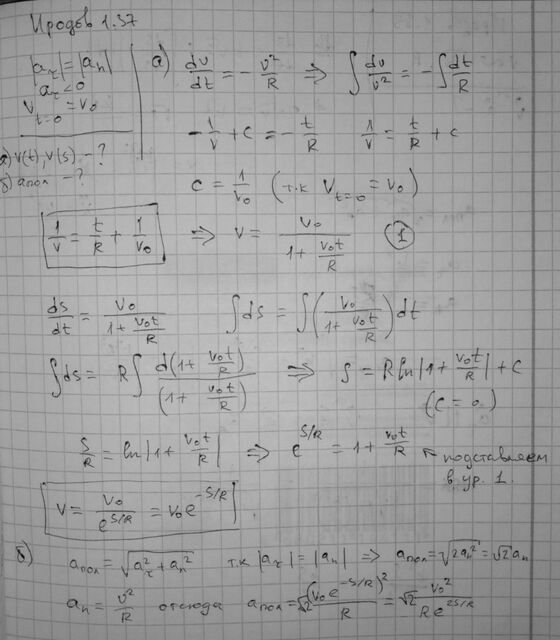 Иродов 1.37
|a_τ| = |a_n|
a_τ < 0
v_{t=0} = v_0
а) v(t), v(s) - ?
б) a_пол - ?
а) dv/dt = - v²/R ⇒ ∫ dv/v² = - ∫ dt/R
- 1/v + c = - t/R   1/v = t/R + c
c = 1/v_0 (т.к v_{t=0} = v_0)
1/v = t/R + 1/v_0 ⇒ v = v_0/(1 + v_0t/R) ①
ds/dt = v_0/(1 + v_0t/R)   ∫ds = ∫(v_0/(1 + v_0t/R))dt
∫ds = R∫ d(1 + v_0t/R)/(1 + v_0t/R) ⇒ S = R ln|1 + v_0t/R| + c
(c = 0)
S/R = ln|1 + v_0t/R| ⇒ e^{S/R} = 1 + v_0t/R ↖ подставляем
в ур. 1.
v = v_0/e^{S/R} = v_0e^{-S/R}
б) a_пол = √(a_τ² + a_n²)   т.к |a_τ| = |a_n| ⇒ a_пол = √(2a_n²) = √2 a_n
a_n = v²/R отсюда a_пол = √2 (v_0e^{-S/R})²/R = √2 v_0²/(R e^{2S/R})